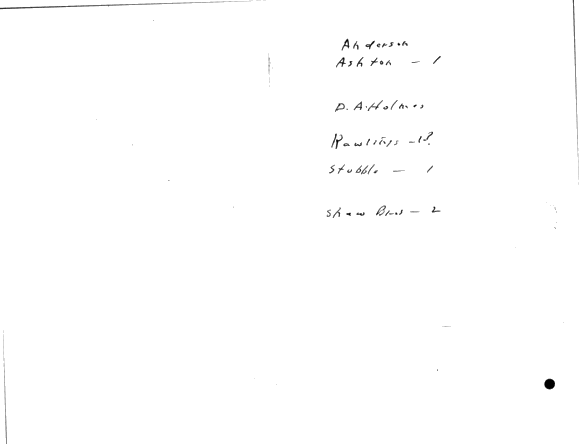 Anderson
Ashton - 1
D. A. Holmes
Rawlings - 1?
Stubble - 1
Shaw Bros - 2